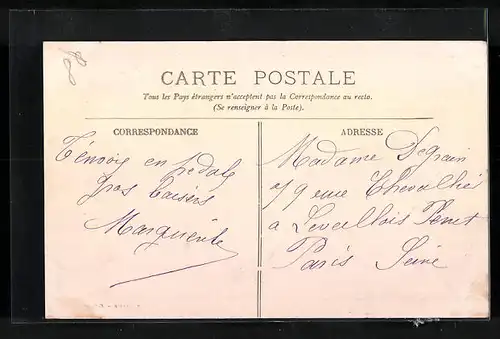 CARTE POSTALE
Tous les Pays étrangers n'acceptent pas la Correspondance au recto.
(Se renseigner à la Poste).
CORRESPONDANCE
T'envoie en pédale
gros baisers
Marguerite
ADRESSE
Madame
rue Chevallier
a Levallois Perret
Paris Seine